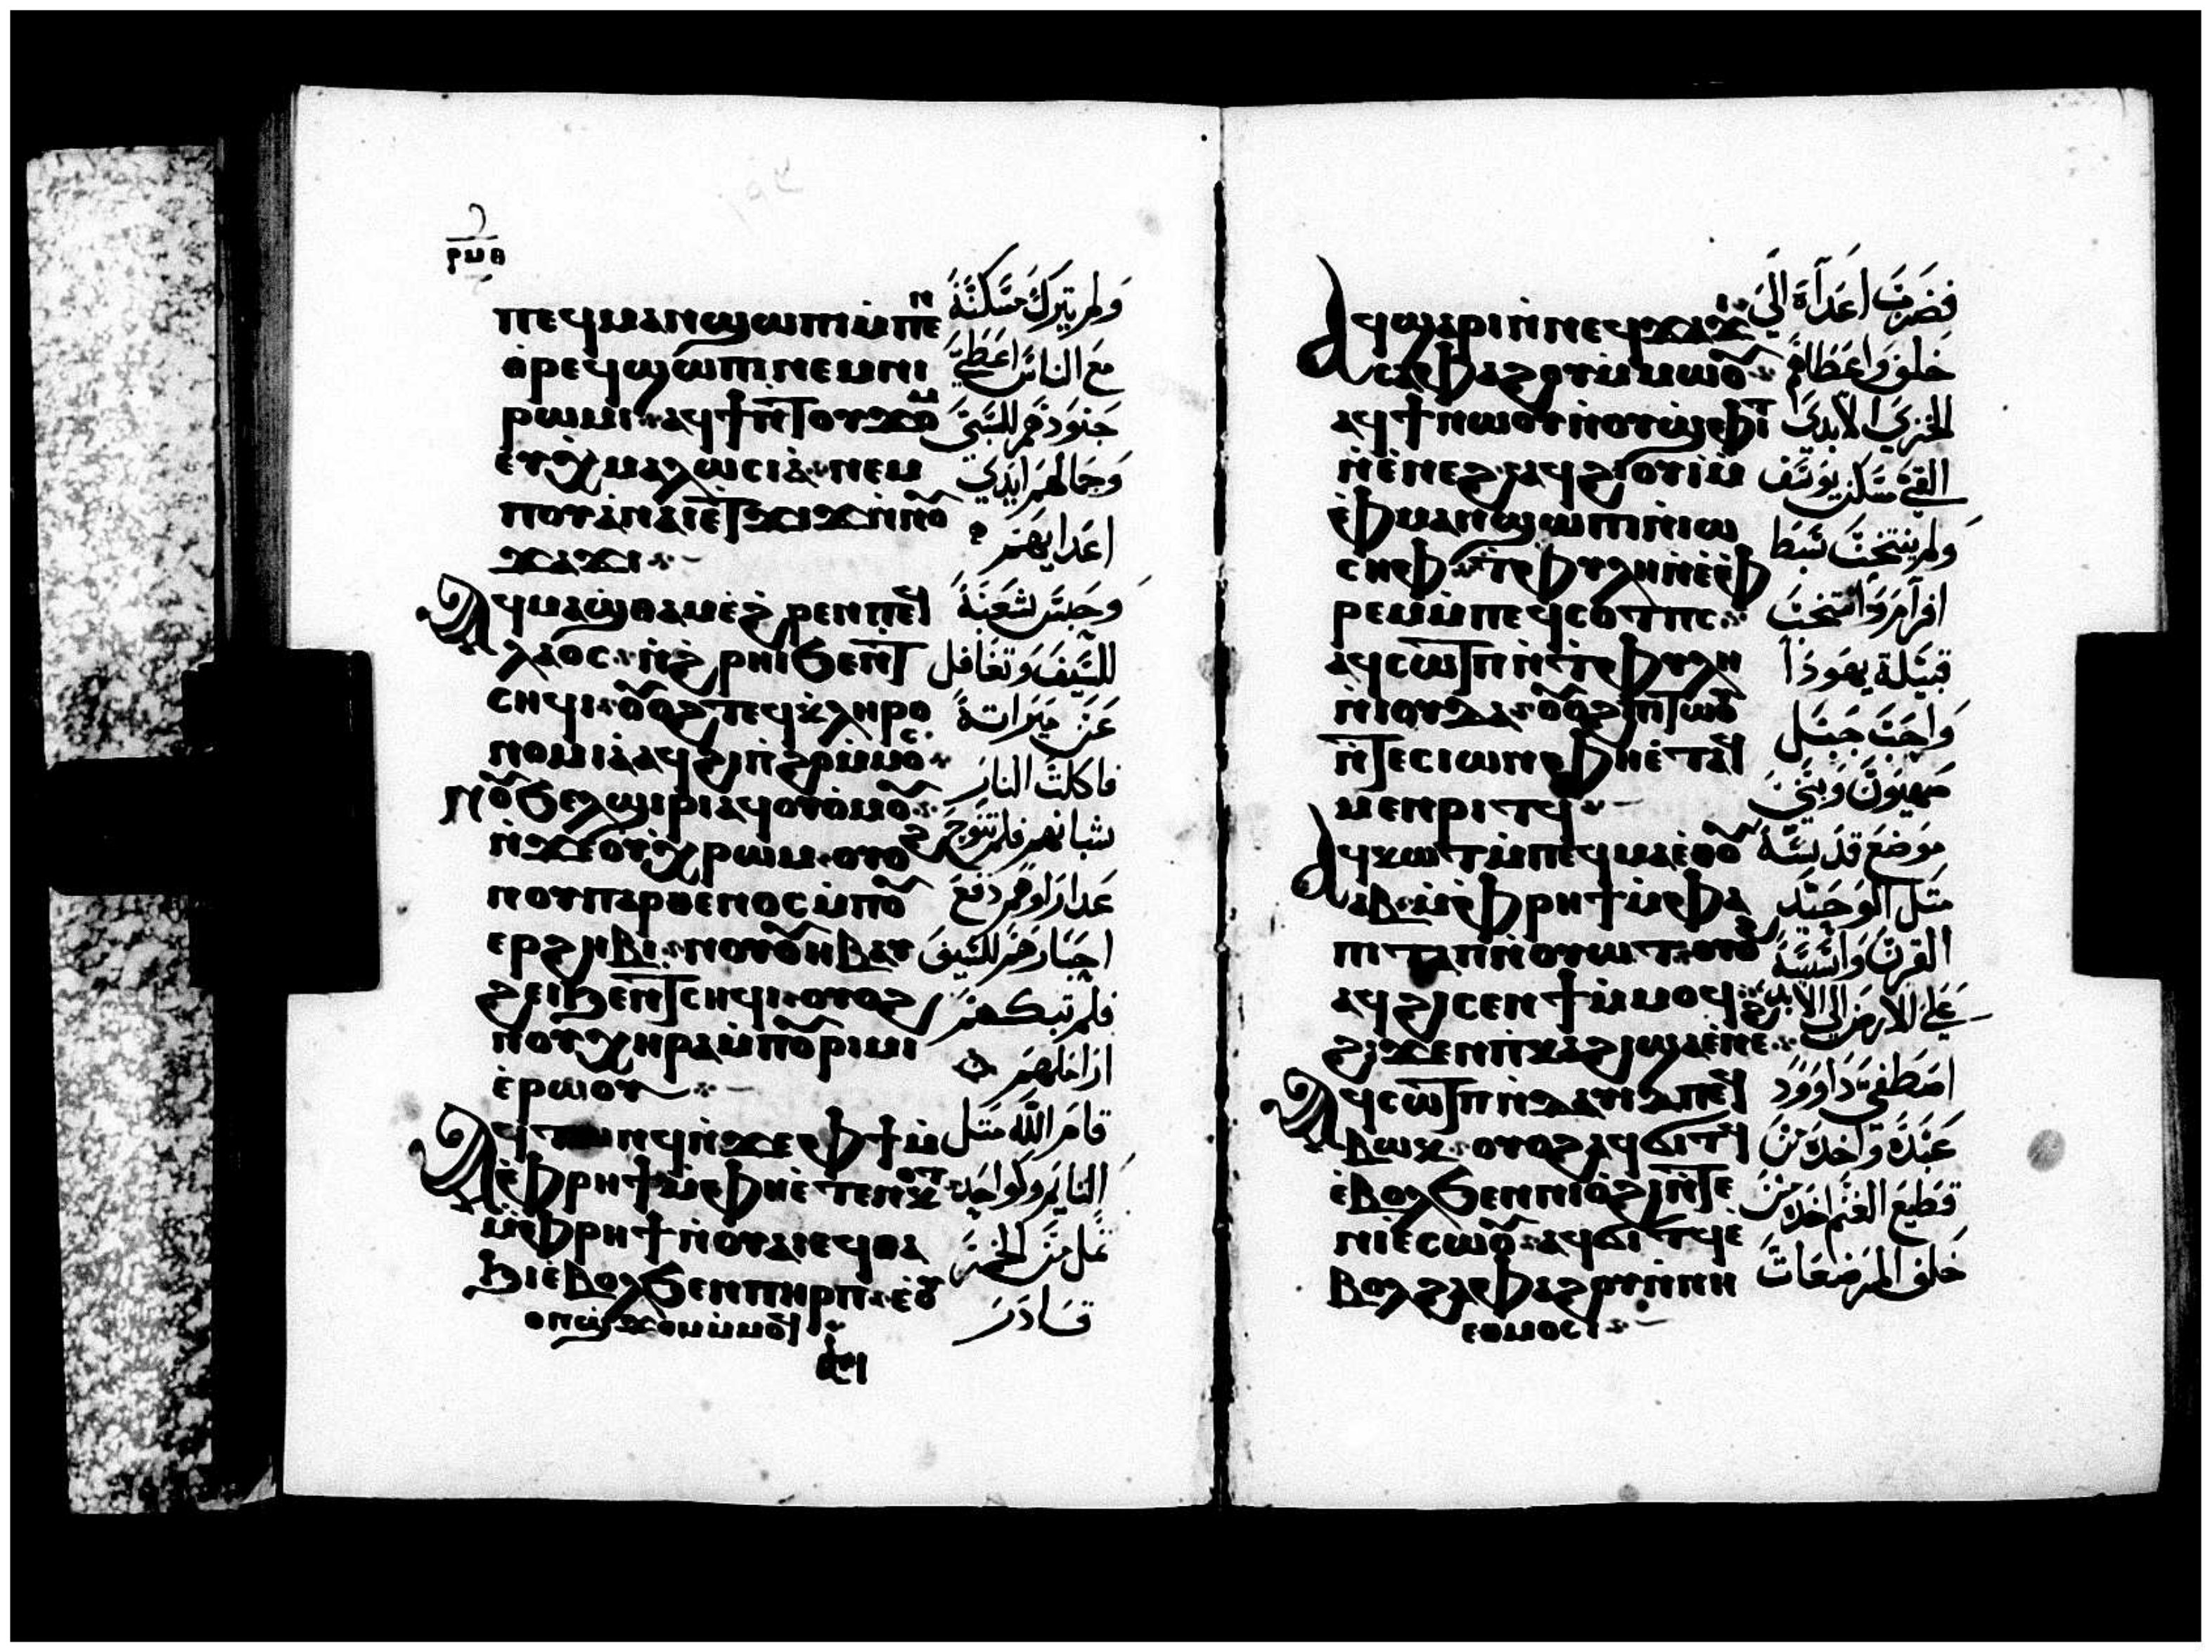 ⲣⲙⲑ
ⲡⲉϥⲙⲁⲛϣⲱⲡⲓ ⲙ̇ⲡⲉ
ⲑⲣⲉϥϣⲱⲡⲓ ⲛⲉⲙ ⲛⲓ
ⲣⲱⲙⲓ ⲁϥϯ ⲛ̇ⲧⲟⲩϫⲟⲙ
ⲉ̇ⲩⲭⲙⲁⲗⲱⲥⲓⲁ̇ ⲛⲉⲙ
ⲡⲟⲩⲁ̇ⲛⲁⲓ ⲉ̇ⲧϫⲓϫ ⲛ̇ⲛⲟⲩ
ϫⲁϫⲓ
Ⲁϥⲙⲁϣⲑⲁⲙ ⲉ̇ϩⲣⲉⲛ ⲡⲉϥ
ⲗⲁⲟⲥ ⲛ̇ϩⲣⲏⲓ ϧⲉⲛ ⲧ
ⲥⲏϥⲓ ⲟⲩⲟϩ ⲧⲉϥⲕⲗⲏⲣⲟ
ⲛⲟⲙⲓⲁ̇ ⲁϥϩⲓ ⲛ̇ϩⲣⲓ ⲙ̇ⲙⲟⲥ
Ⲛⲟⲩϧⲉⲗϣⲓⲣⲓ ⲁϥⲟⲩⲟⲙⲟⲩ
ⲛ̇ϫⲉ ⲟⲩⲭⲣⲱⲙ ⲟⲩⲟϩ
ⲛⲟⲩⲡⲁⲣⲑⲉⲛⲟⲥ ⲙ̇ⲡⲟⲩ
ⲉⲣϩⲏⲃⲓ ⲛⲟⲩⲟⲩⲏⲃ ⲁⲩ
ϩⲉⲓ ϧⲉⲛ ⲧⲥⲏϥⲓ ⲟⲩⲟϩ
ⲛⲟⲩⲭⲏⲣⲁ ⲙ̇ⲡⲟⲩⲣⲓⲙⲓ
ⲉ̇ⲣⲱⲟⲩ
Ⲁϥⲧⲱⲛϥ ⲛ̇ϫⲉ ⲫϯ ⲙ̇
ⲫⲣⲏϯ ⲙ̇ⲫⲏ ⲉ̇ⲧⲉⲛⲕⲟⲧ
ⲙ̇ⲫⲣⲏϯ ⲛ̇ⲟⲩⲁⲓ ⲉϥⲑⲁ
ϧⲓ ⲉ̇ⲃⲟⲗ ϧⲉⲛ ⲡⲓⲏⲣⲡ ⲉ̇ⲟⲩ
ⲟⲛϣϫⲟⲙ ⲙ̇ⲙⲟϥ
ولم يترك مسكنه
مع الناس اعطي
جنودهم للسبي
وجمالهم ايدي
اعدايهم
وحبس شعبه
للسيف وتغافل
عن ميراته
فاكلت النار
شبانهم فلم تنوح
عداراوهم دفع
احبارهم للسيف
فلم تبكهم
اراملهم
قام الله متل
النايم وكواحد
تمل من الخمر
قادر
Ⲁϥϣⲁⲣⲓ ⲛ̇ⲛⲉϥϫⲁϫⲓ
ⲥⲁⲫⲁϩⲟⲩ ⲙ̇ⲙⲱⲟⲩ
ⲁϥϯ ⲛⲱⲟⲩ ⲛ̇ⲟⲩϣⲫⲓⲧ
ⲛ̇ⲉ̇ⲛⲉϩ ⲁϥϩⲓⲟⲩⲓ ⲙ̇
ⲫⲙⲁⲛϣⲱⲡⲓ ⲛ̇ⲓⲱ
ⲥⲏⲫ ⲧⲫⲩⲗⲏ ⲛ̇ⲉ̇ⲫ
ⲣⲉⲙ ⲙ̇ⲡⲉϥⲥⲟⲧⲡⲥ
ⲁϥⲥⲱⲧⲡ ⲛ̇ⲧⲫⲩⲗⲏ
ⲛ̇ⲓⲟⲩⲇⲁ ⲟⲩⲟϩ ⲡⲧⲱⲟⲩ
ⲛ̇ⲧⲉ ⲥⲓⲱⲛ ⲫⲏ ⲉ̇ⲧⲁϥ
ⲙⲉⲛⲣⲓⲧϥ
Ⲁϥⲕⲱⲧ ⲙ̇ⲡⲉϥⲙⲁ ⲉⲑⲟⲩ
ⲁⲃ ⲙ̇ⲫⲣⲏϯ ⲙ̇ⲫⲁ
ⲡⲓⲧⲁⲡ ⲛ̇ⲟⲩⲱⲧ ⲟⲩⲟϩ
ⲁϥϩⲓⲥⲉⲛϯ ⲙ̇ⲙⲟϥ
ϩⲓϫⲉⲛ ⲡⲕⲁϩⲓ ϣⲁ ⲉ̇ⲛⲉϩ
Ⲁϥⲥⲱⲧⲡ ⲛ̇ⲇⲁⲩⲓⲇ ⲡⲉϥ
ⲃⲱⲕ ⲟⲩⲟϩ ⲁϥϭⲓⲧϥ
ⲉ̇ⲃⲟⲗ ϧⲉⲛ ⲛⲓⲟ̇ϩⲓ ⲛ̇ⲧⲉ
ⲛⲓⲉ̇ⲥⲱⲟⲩ ⲁϥϭⲓⲧϥ ⲉ̇
ⲃⲟⲗ ϩⲁ ⲫⲁϩⲟⲩ ⲛ̇ⲛⲏ
ⲉⲑⲙⲟⲥⲓ
فضرب اعداه الي
خلف واعطاهم
الخزي الابدي
القي مسكن يوسف
ولم ينتخب سبط
افرام وانتخب
قبيلة يهودا
واحب جبل
صهيون وبني
موضع قدسه
متل الوحيد
القرن واسسه
علي الارض الي الابد
اصطفي داوود
عبده واخده من
قطيع الغنم اخده من
خلف المرضعات